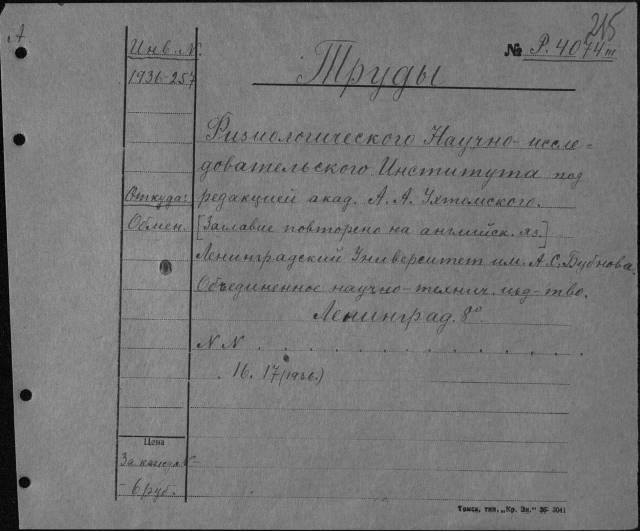 А
215
Инв. N.
№ Р. 4074 т
1936-257
Труды
Физиологического Научно-иссле=
довательского Института под
Откуда:
редакцией акад. А. А. Ухтомского.
Обмен.
[Заглавие повторено на английск. яз.]
Ленинградский Университет им. А. С. Бубнова.
Объединенное научно-технич. изд-тво.
Ленинград. 8°.
N N . . . . . . . . . . . . .
16. 17 (1936.)
Цена
За кажд. N-
- 6 руб.
Томск, тип. „Кр. Зн." 36- 3041